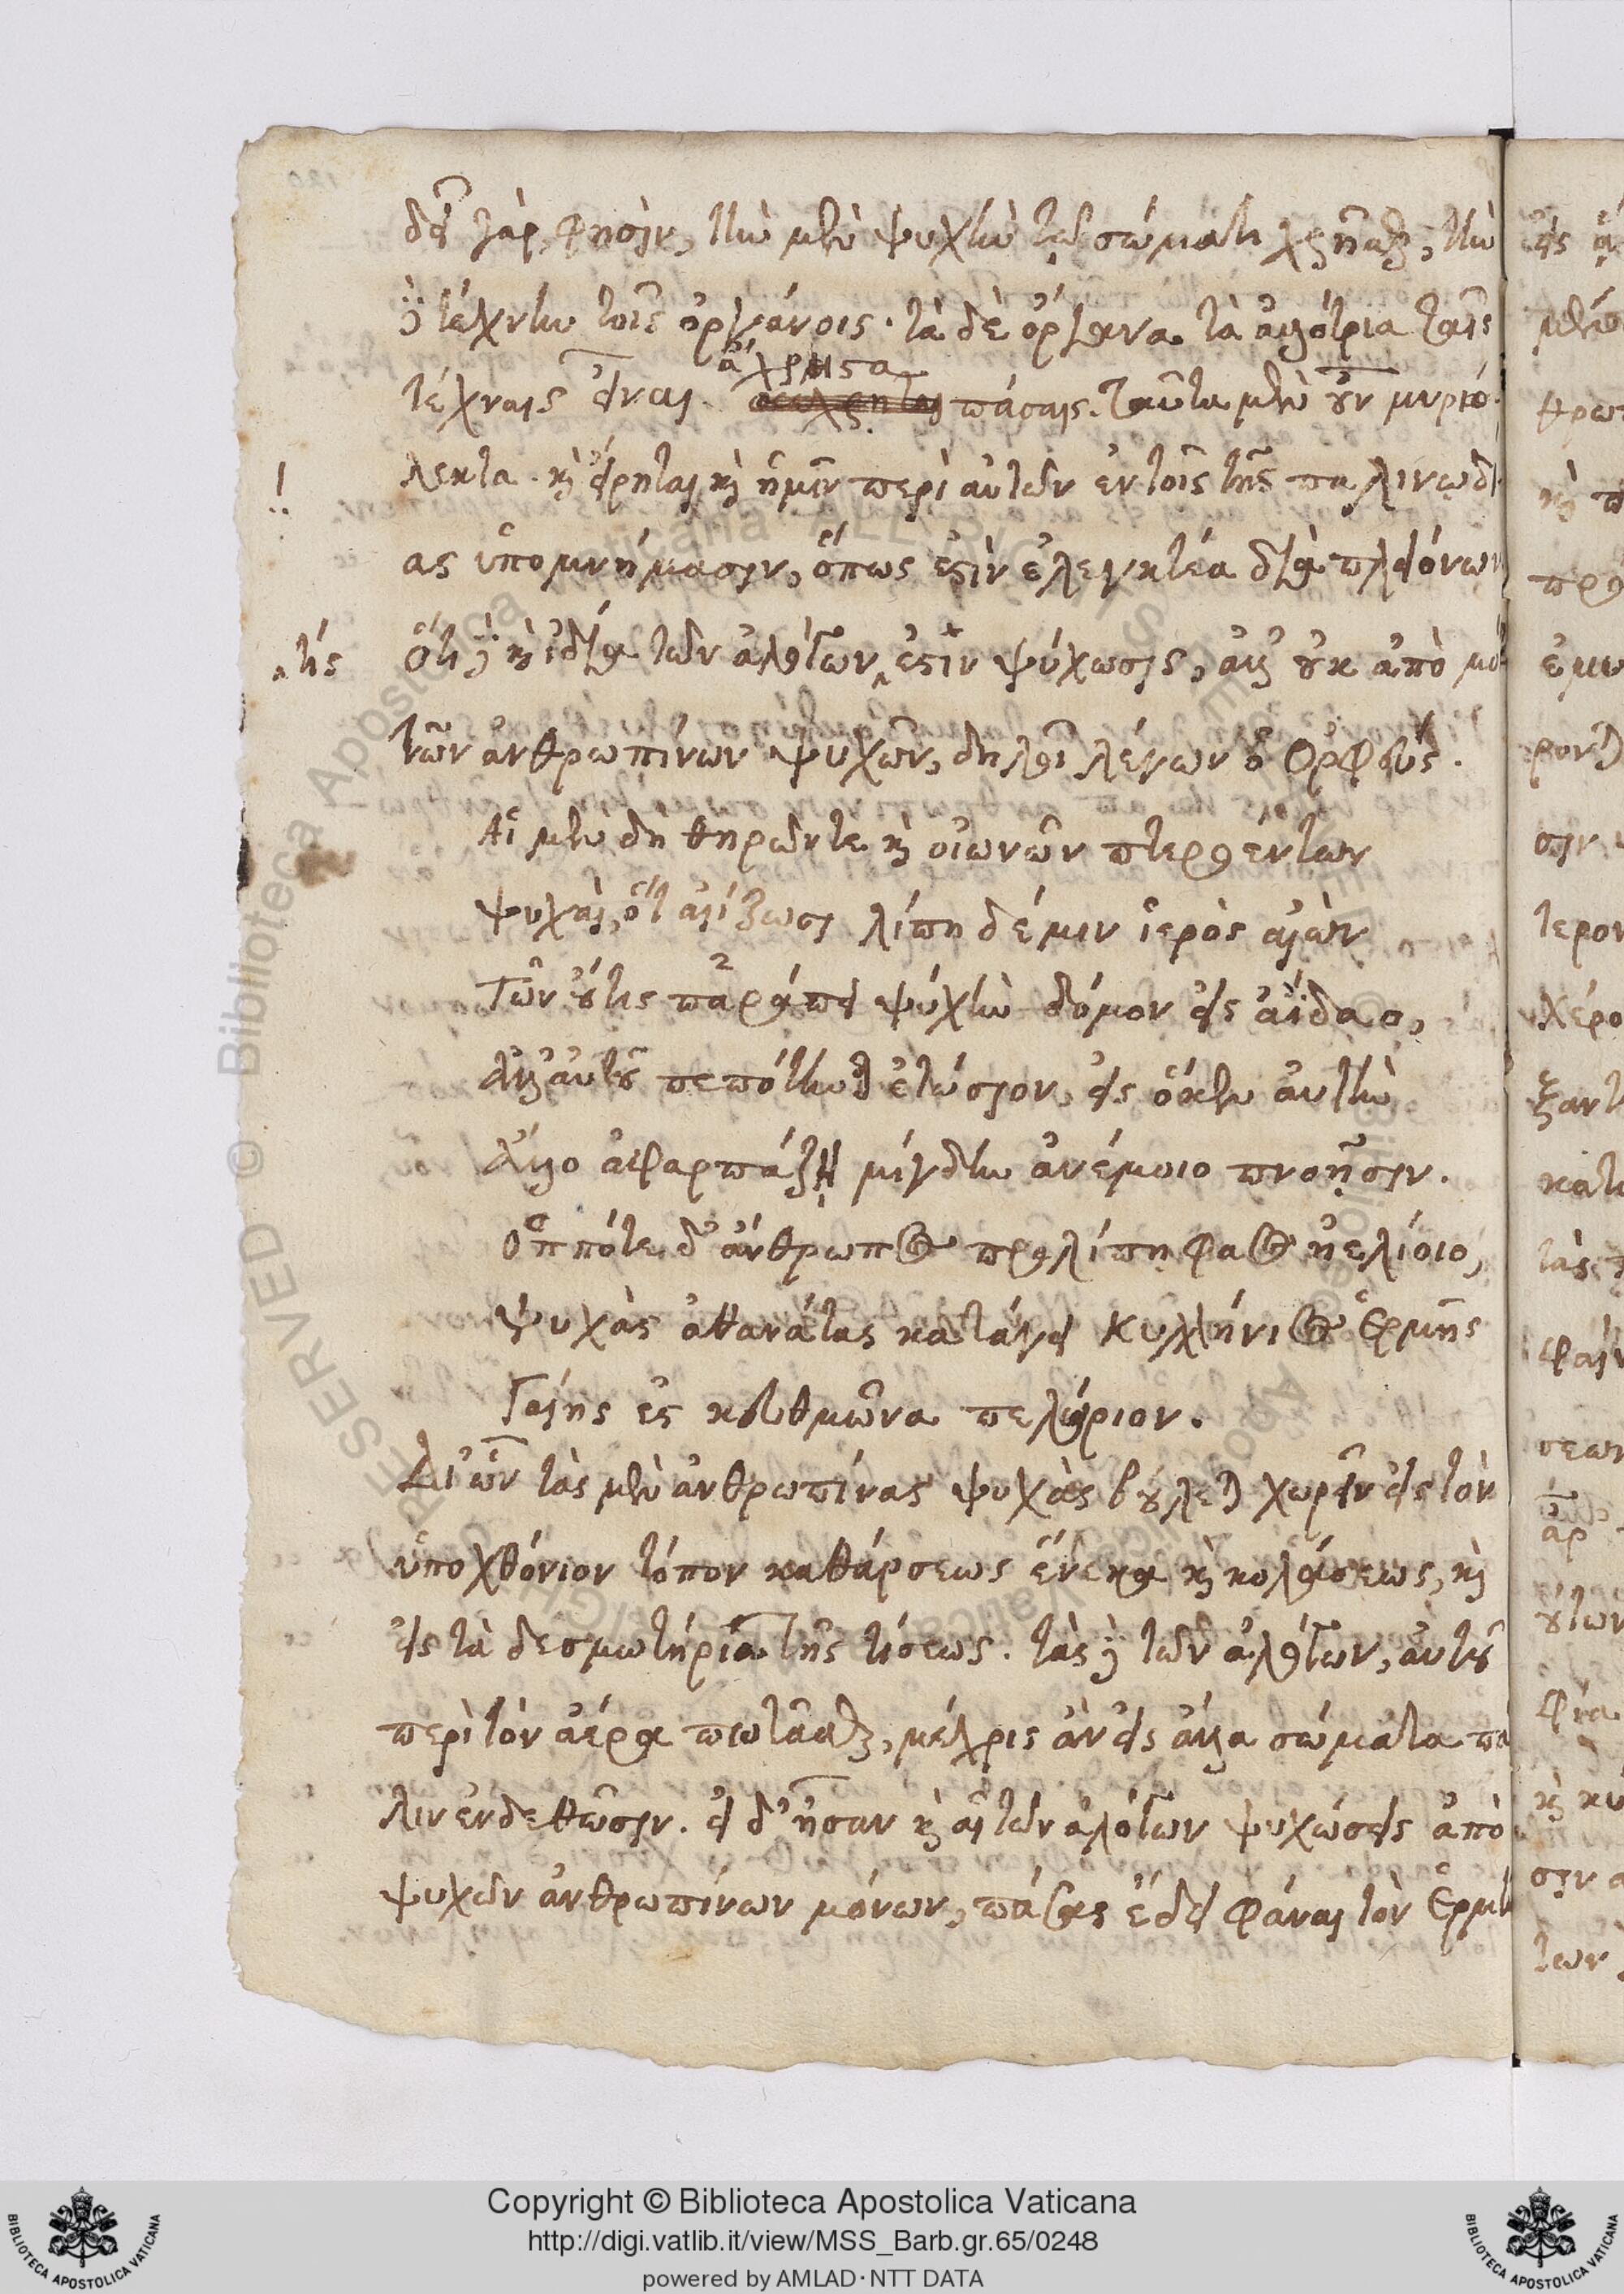 δεῖ γάρ, φησὶν, τὴν μὲν ψυχὴν τῷ σώματι χρῆσθαι, τὴν
δὲ τέχνην τοῖς ὀργάνοις· τὰ δὲ ὄργανα τὰ ἀλλότρια ταῖς
ἄχρηστα
τέχναις εἶναι πάσαις. Ταῦτα μὲν οὖν μυριό
λεκτα. καὶ εἴρηται καὶ ἡμῖν περὶ αὐτῶν ἐν τοῖς τῆς παλινῳδί
!
ας ὑπομνήμασιν, ὅπως ἐστὶν ἐλεγκτέα διὰ πλειόνων
Ὅτι δὲ καὶ ἰδία τῶν ἀλόγων ἐστὶν ψύχωσις, ἀλλ' οὐκ ἀπὸ μό
τίς
τῶν ἀνθρωπίνων ψυχῶν, δηλοῖ λέγων ὁ Ὀρφεύς.
Αἱ μὲν δὴ θηρῶντε καὶ οἰωνῶν πτεροέντων
ψυχαὶ, ὅτ' ἀΐξωσι λίπη δέ μιν ἱερὸς αἰὼν
Τῶν οὔτις παράπει ψύχὴν δόμον εἰς ἀΐδαο,
Ἀλλ' αὐτοῦ πεπότηται ἐτώσιον, εἰς ὅκεν αὐτὴν
Ἄλλο ἀφαρπάζῃ μίγδην ἀνέμοιο πνοῇσιν.
Ὁππότε δ' ἄνθρωπος προλίπῃ φαος ἠελίοιο,
Ψυχὰς ἀθανάτας κατάγει Κυλλήνιος Ἑρμῆς
Γαίης ἐς κευθμῶνα πελώριον.
Δι' ὧν τὰς μὲν ἀνθρωπίνας ψυχὰς βούλεται χωρεῖν εἰς τὸν
ὑποχθόνιον τόπον καθάρσεως ἕνεκα καὶ κολάσεως, καὶ
εἰς τὰ δεσμωτήρια τῆς τίσεως. τὰς δὲ τῶν ἀλόγων, αὐτοῦ
περὶ τὸν ἀέρα ποτᾶσθαι, μέχρις ἂν εἰς ἄλλα σώματα πά
λιν ἐνδεθῶσιν. εἰ δ' ἦσαν καὶ αἱ τῶν ἀλόγων ψυχώσεις ἀπὸ
ψυχῶν ἀνθρωπίνων μόνων, πάσας ἔδει φάναι τὸν Ἑρμῆ
Copyright © Biblioteca Apostolica Vaticana
http://digi.vatlib.it/view/MSS_Barb.gr.65/0248
powered by AMLAD · NTT DATA
BIBLIOTECA APOSTOLICA VATICANA
BIBLIOTECA APOSTOLICA VATICANA